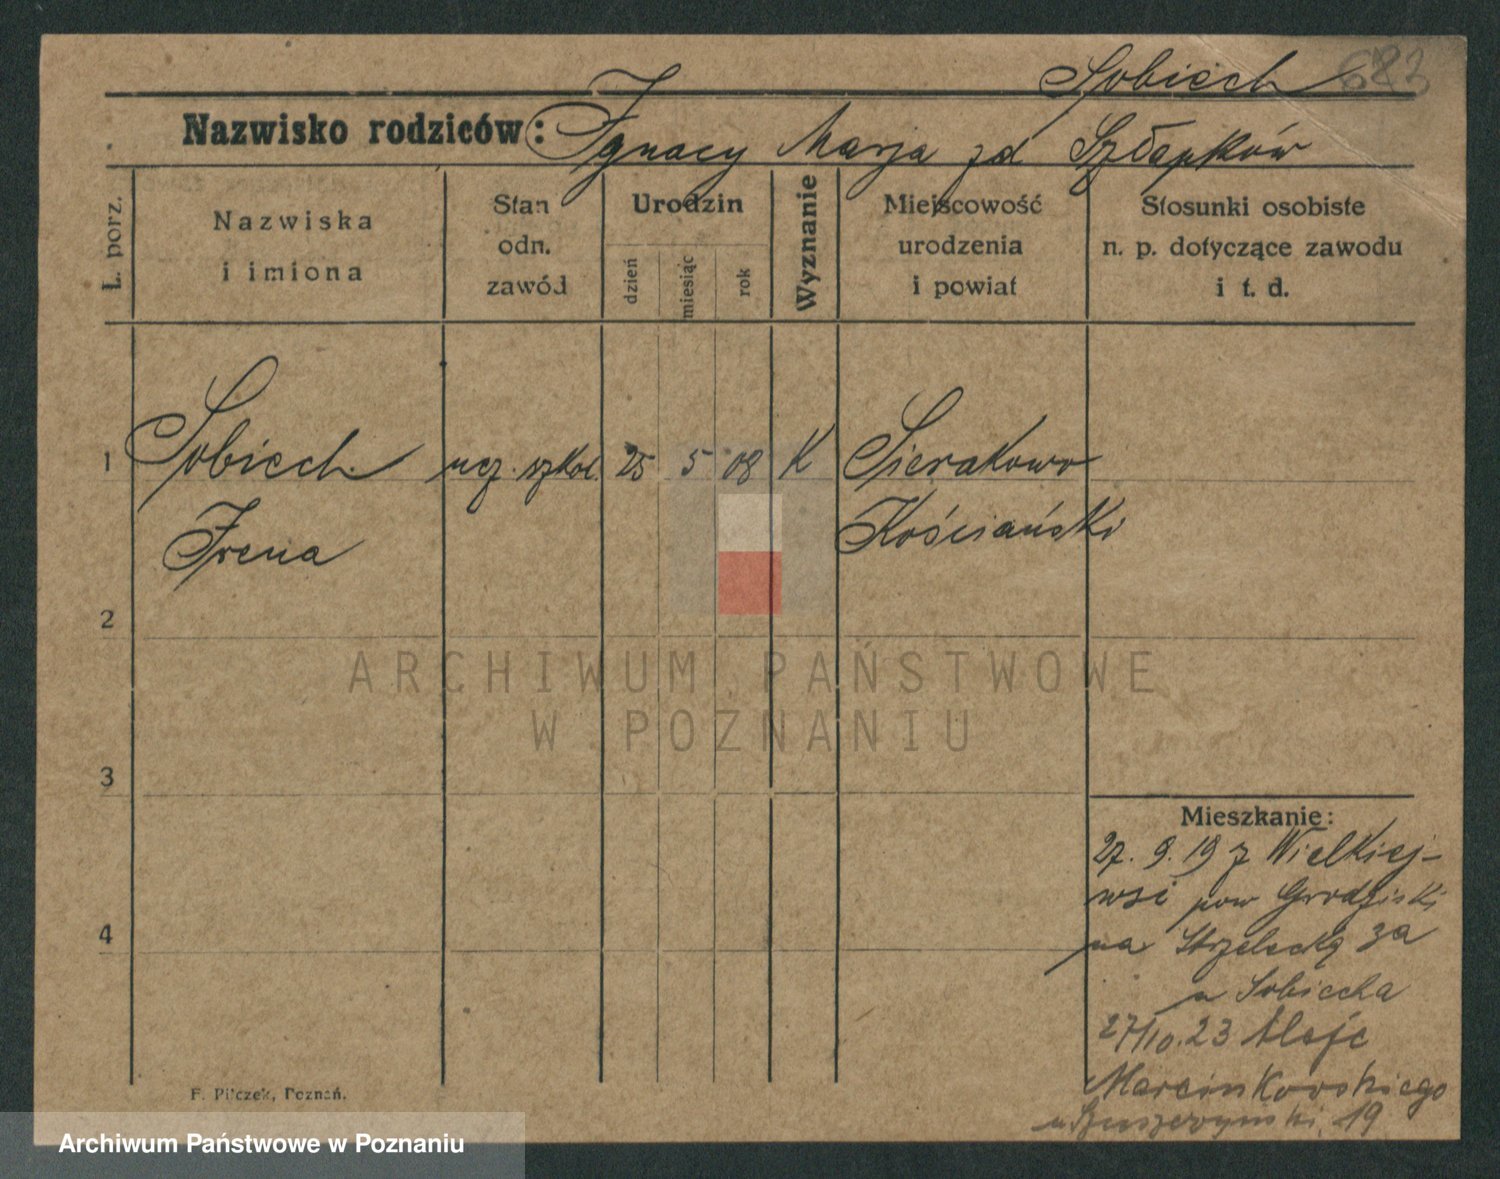 Sobiech 683
Nazwisko rodziców: Ignacy Marja zd Szłapków
L. porz.
Nazwiska
i imiona
Stan
odn.
zawód
Urodzin
dzień
miesiąc
rok
Wyznanie
Miejscowość
urodzenia
i powiat
Stosunki osobiste
n. p. dotyczące zawodu
i t. d.
1 Sobiech ucz. szkol. 25 5 08 K Sierakowo
Irena Kościański
2
3
4
ARCHIWUM PAŃSTWOWE
W POZNANIU
Mieszkanie:
27. 9. 19 z Wielkiej-
wsi pow Grodziski
na Strzelecką 3a
u Sobiecha
27/10.23 Aleje
Marcinkowskiego
19
F. Pilczek, Poznań.
Archiwum Państwowe w Poznaniu